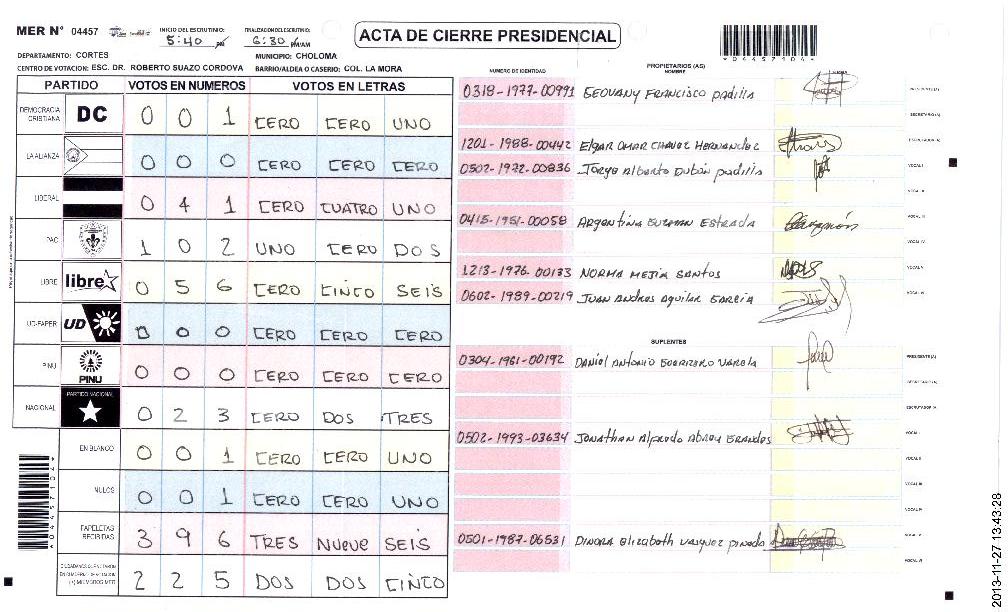 MER N° 04457
INICIO DEL ESCRUTINIO:
5:40 PM
FINALIZACION DEL ESCRUTINIO:
6:30 PM/AM
ACTA DE CIERRE PRESIDENCIAL
*04457104*
DEPARTAMENTO: CORTES
MUNICIPIO: CHOLOMA
CENTRO DE VOTACION: ESC. DR. ROBERTO SUAZO CORDOVA BARRIO/ALDEA O CASERIO: COL. LA MORA
PARTIDO VOTOS EN NUMEROS VOTOS EN LETRAS
DEMOCRACIA CRISTIANA DC 0 0 1 CERO CERO UNO
LA ALIANZA 0 0 0 CERO CERO CERO
LIBERAL 0 4 1 CERO CUATRO UNO
PAC 1 0 2 UNO CERO DOS
LIBRE libre 0 5 6 CERO CINCO SEIS
UD-FAPER UD 0 0 0 CERO CERO CERO
PINU PINU 0 0 0 CERO CERO CERO
NACIONAL PARTIDO NACIONAL 0 2 3 CERO DOS TRES
EN BLANCO 0 0 1 CERO CERO UNO
NULOS 0 0 1 CERO CERO UNO
PAPELETAS RECIBIDAS 3 9 6 TRES NUEVE SEIS
2 2 5 DOS DOS CINCO
*04457104*
NUMERO DE IDENTIDAD
PROPIETARIOS (AS)
NOMBRE
FIRMA
0318-1977-00991 GEOVANY FRANCISCO padilla PRESIDENTE(A)
SECRETARIO(A)
1201-1988-00442 Elgar OMAR CHAVEZ HERNANDEZ ESCRUTADOR(A)
0502-1972-00836 Jorge Alberto Dubón padilla VOCAL I
VOCAL II
0415-1951-00058 Argentina GUZMAN Estrada VOCAL III
VOCAL IV
1213-1976-00133 NORMA MEJIA SANTOS VOCAL V
0602-1989-00219 JUAN Andres Aguilar GARCIA VOCAL VI
SUPLENTES
0304-1961-00192 DANIEL ANTONIO Varela PRESIDENTE(A)
SECRETARIO(A)
ESCRUTADOR(A)
0502-1993-03634 JONATHAN Alfredo VOCAL I
VOCAL II
VOCAL III
VOCAL IV
0501-1987-06531 DINORA Elizabeth VASQUEZ pineda VOCAL V
VOCAL VI
2013-11-27 13:43:28